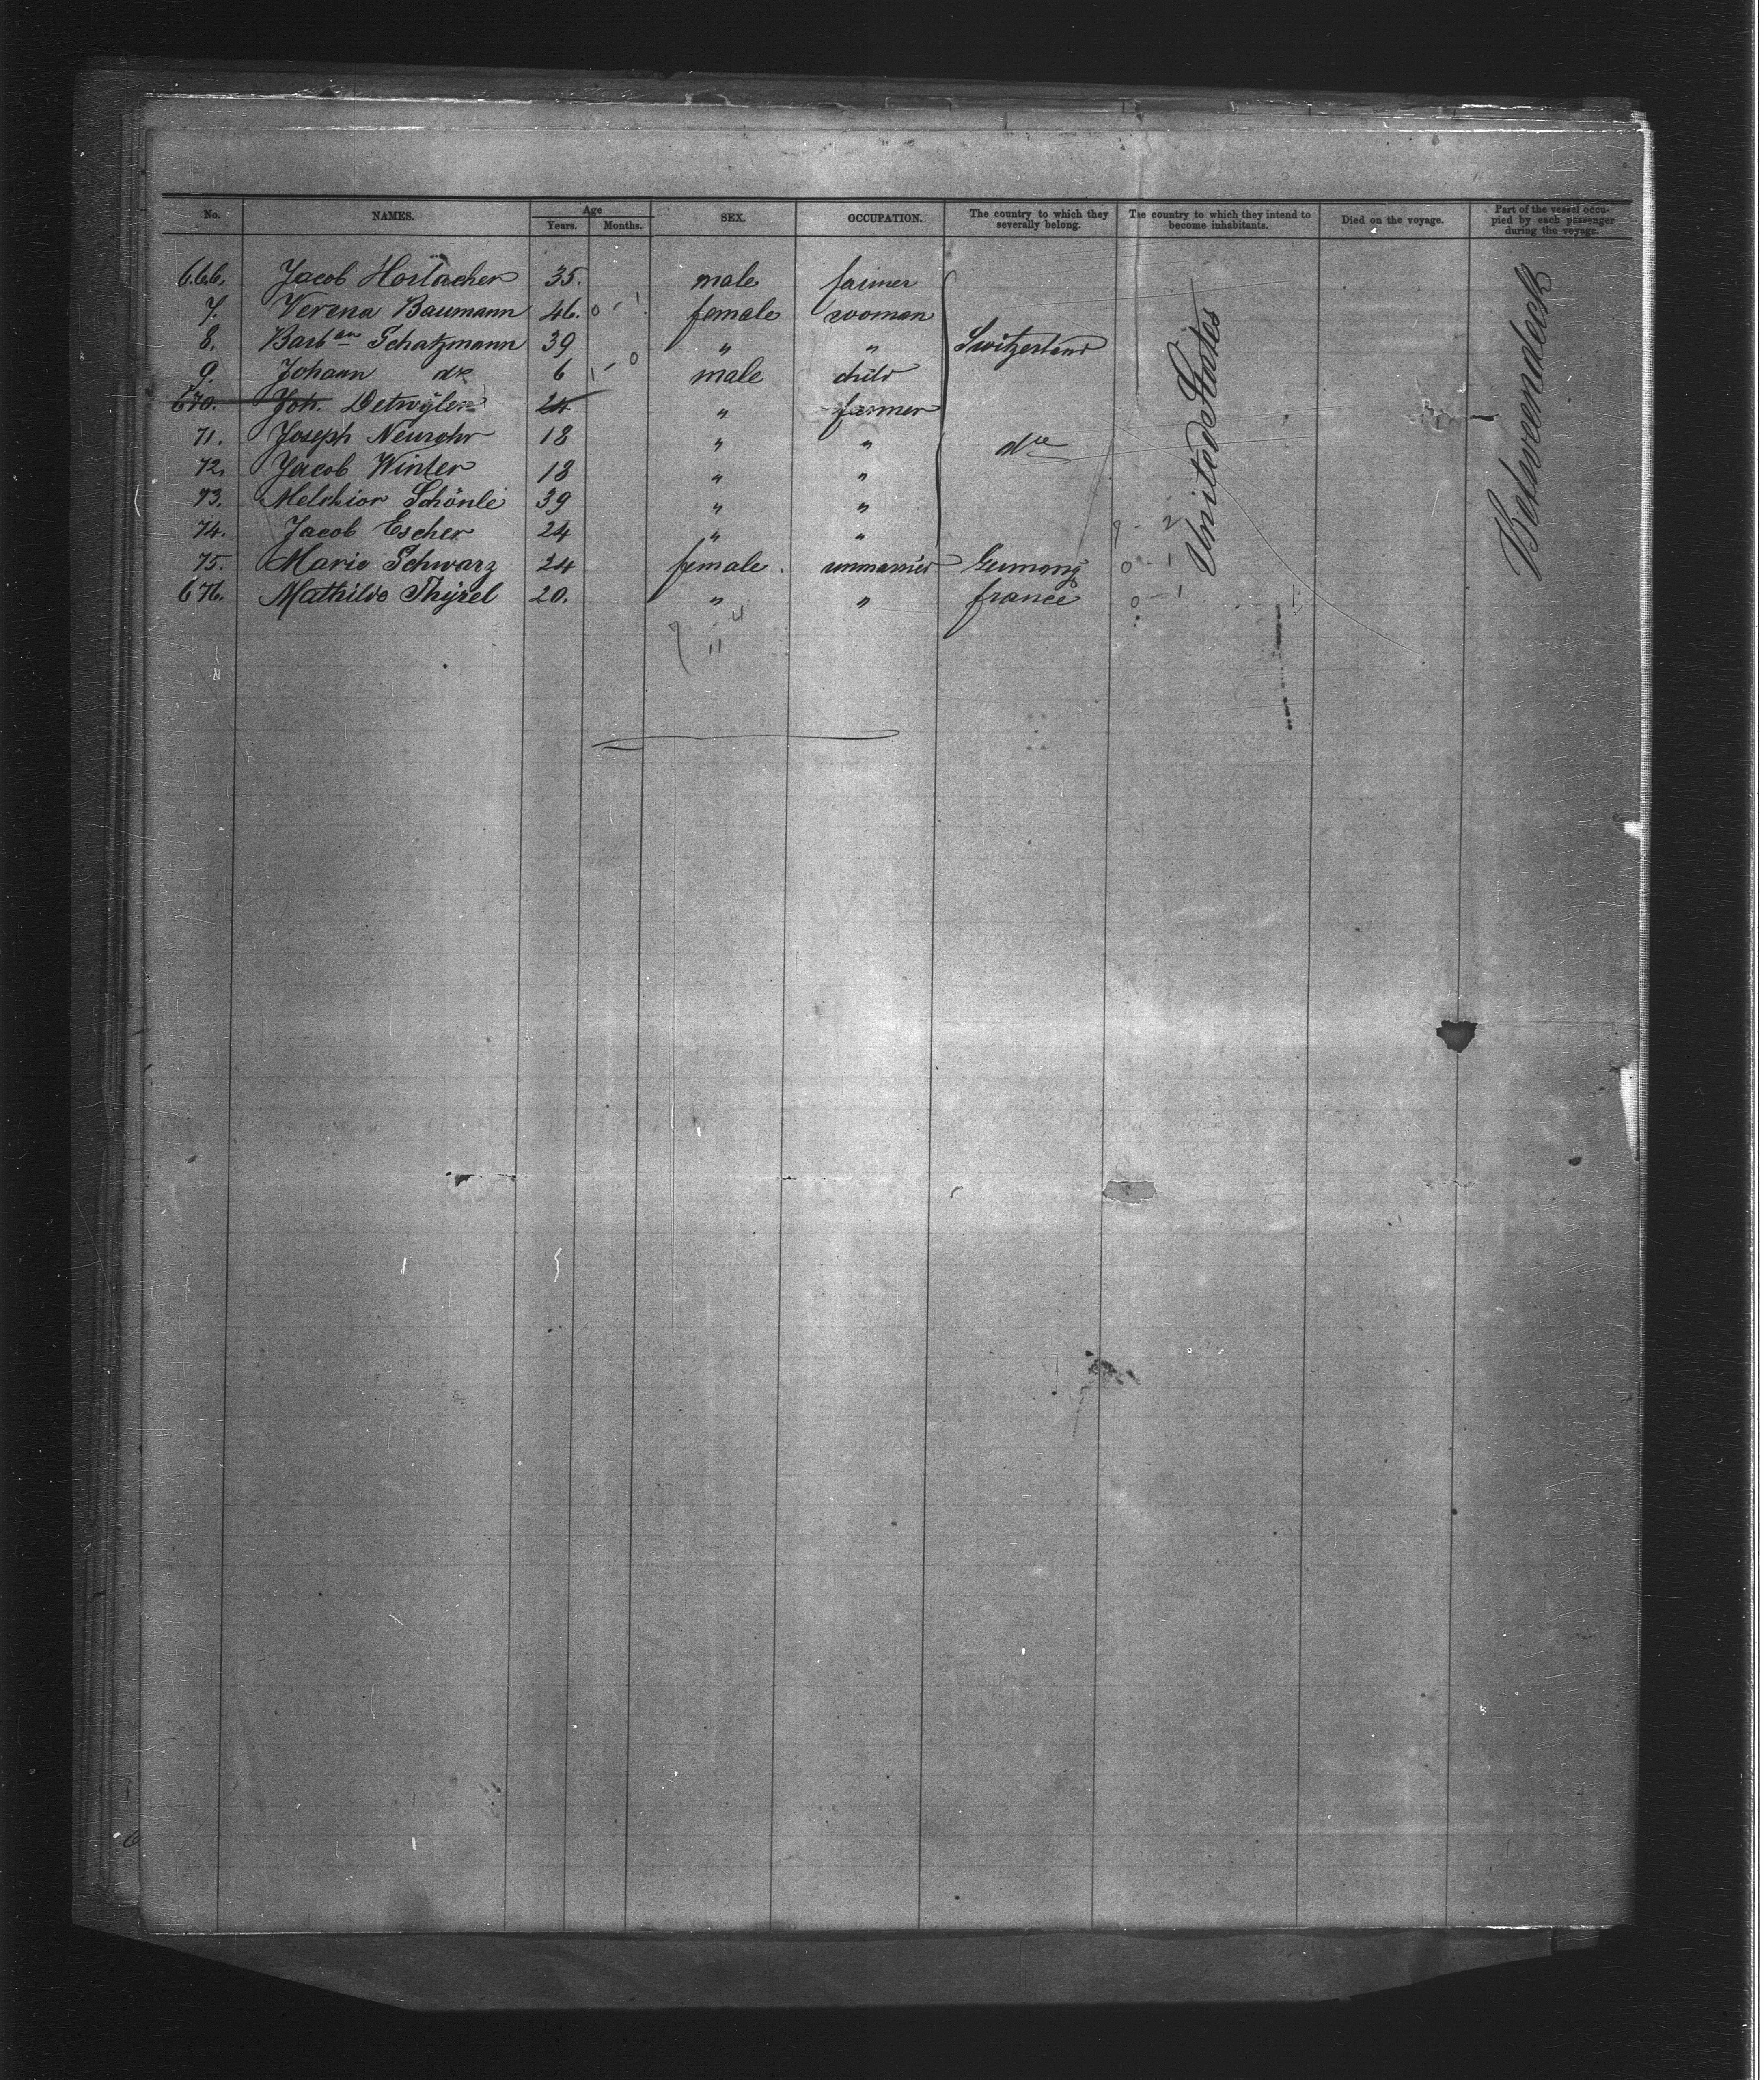 No. NAMES. Age Years. Months. SEX. OCCUPATION. The country to which they severally belong. The country to which they intend to become inhabitants. Died on the voyage. Part of the vessel occupied by each passenger during the voyage.
666. Jacob Horlacher 35. male farmer
7. Verena Baumann 46. 0 - 1 female woman
8. Barbara Schatzmann 39 " " Switzerland
9. Johann do 6 1 - 0 male child
670. Joh. Detwyler 24 " farmer
71. Joseph Neurohr 18 " " do
72. Jacob Winter 18 " "
73. Melchior Schönle 39 " "
74. Jacob Escher 24 " " 7 - 2
75. Marie Schwarz 24 female unmarried Germany 0 - 1
676. Mathilde Thyrel 20. " " france 0 - 1
United States
Betweendeck
7 4
11